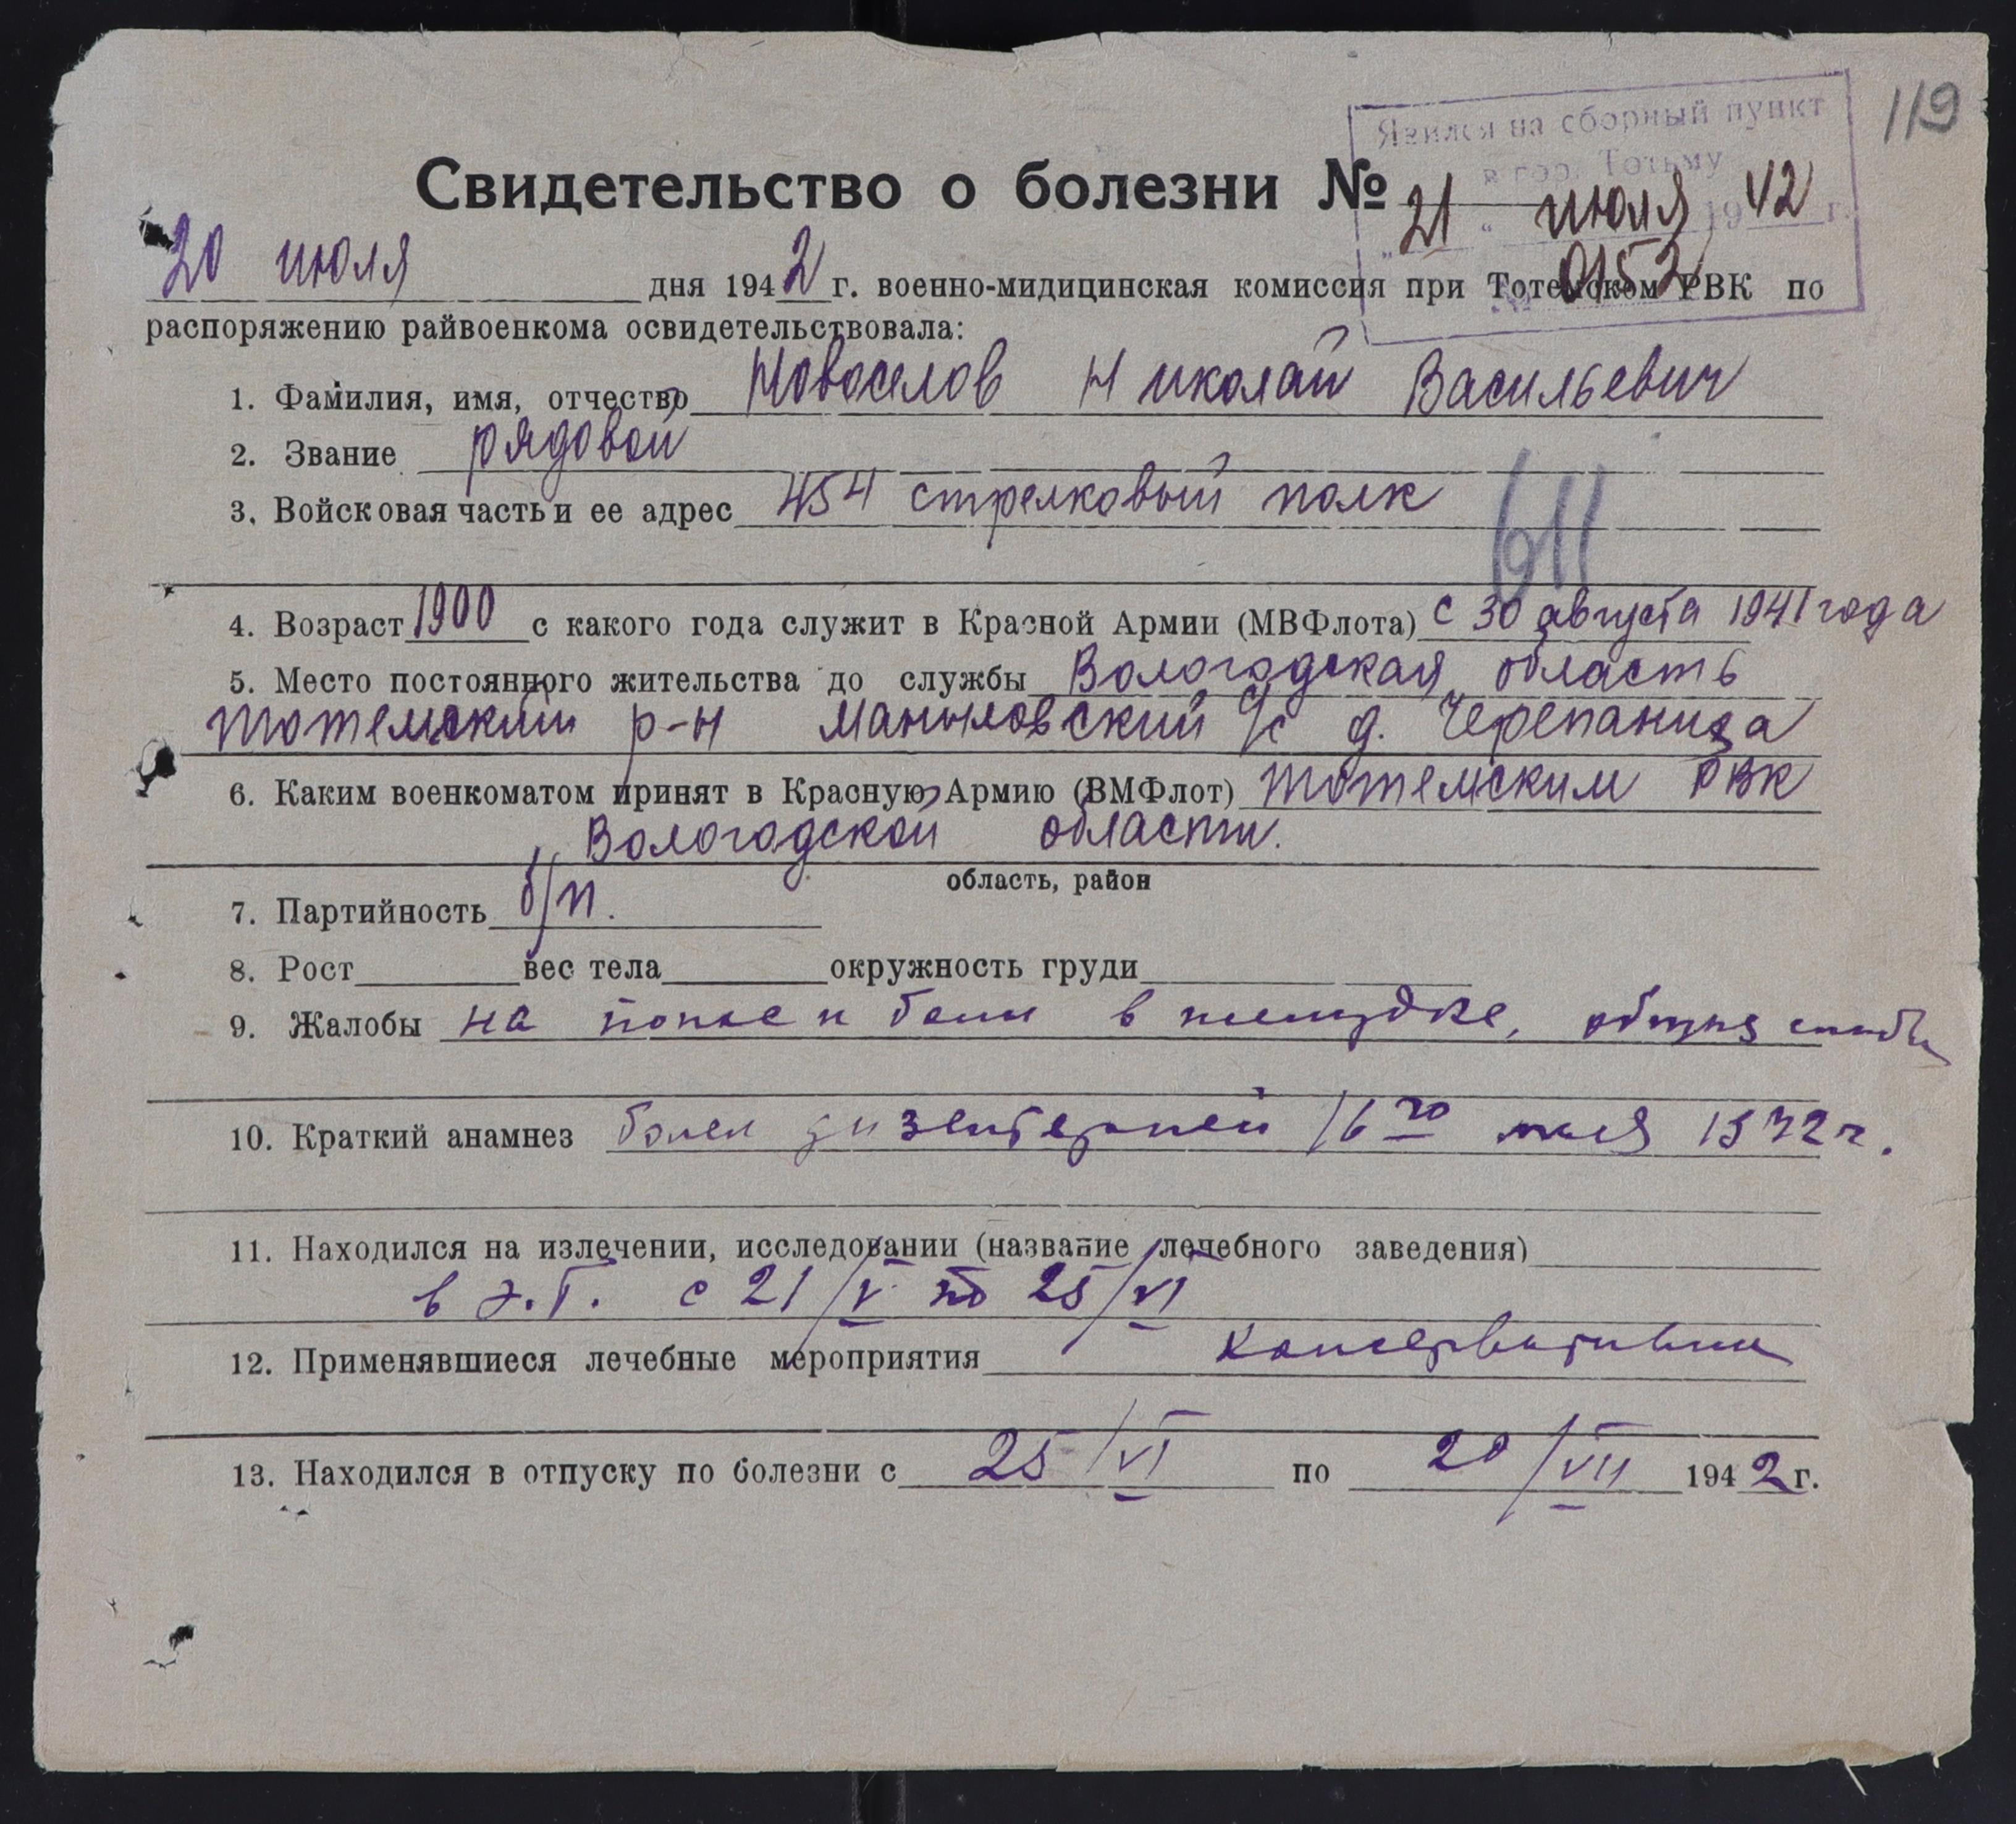 119
Явился на сборный пункт
в гор. Тотьму
"21" июля 1942 г.
№ 0152
Свидетельство о болезни №
20 июля дня 1942 г. военно-мидицинская комиссия при Тотемском РВК по
распоряжению райвоенкома освидетельствовала:
1. Фамилия, имя, отчество Новоселов Николай Васильевич
2. Звание рядовой
3. Войсковая часть и ее адрес 454 стрелковый полк
611
4. Возраст 1900 с какого года служит в Красной Армии (МВФлота) с 30 августа 1941 года
5. Место постоянного жительства до службы Вологодская область
Тотемский р-н Маныловский с/с д. Черепаница
6. Каким военкоматом принят в Красную Армию (ВМФлот) Тотемским РВК
Вологодской области.
область, район
7. Партийность б/п.
8. Рост вес тела окружность груди
9. Жалобы на понос и боли в желудке, общая слаб
10. Краткий анамнез болел дизентерией 16го мая 1942 г.
11. Находился на излечении, исследовании (название лечебного заведения)
в э.г. с 21/V по 25/VI
12. Применявшиеся лечебные мероприятия консервативные
13. Находился в отпуску по болезни с 25/VI по 20/VII 1942 г.